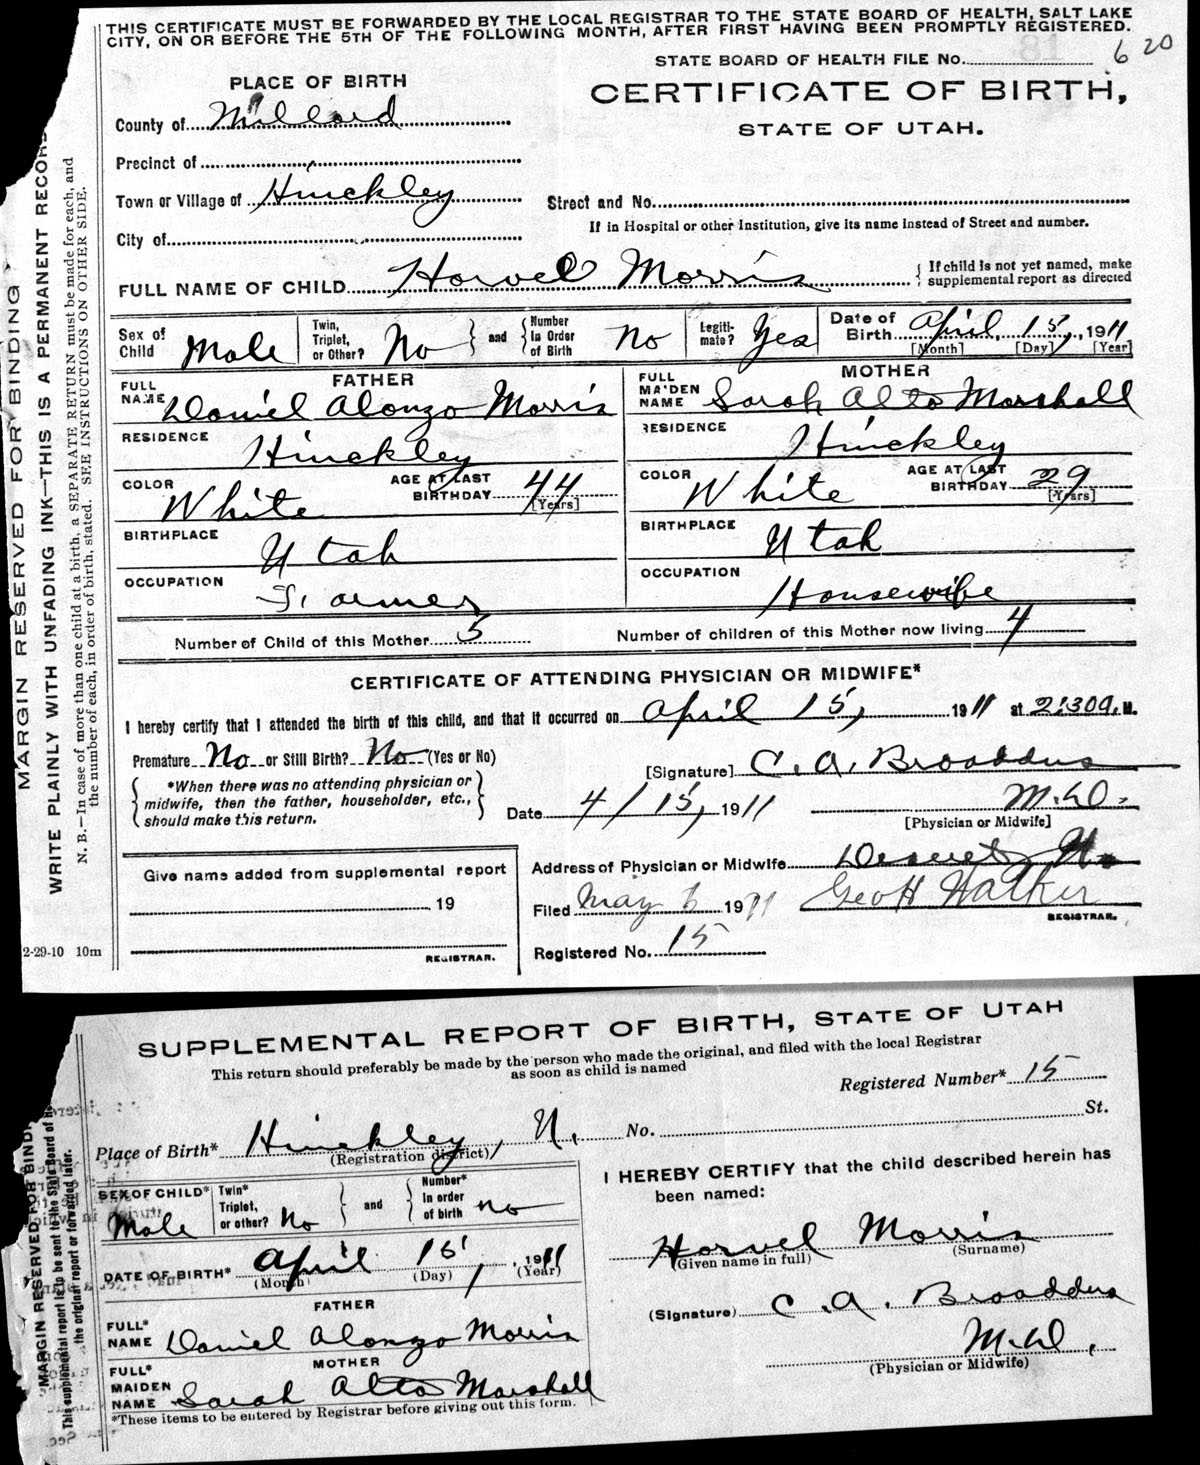 THIS CERTIFICATE MUST BE FORWARDED BY THE LOCAL REGISTRAR TO THE STATE BOARD OF HEALTH, SALT LAKE
CITY, ON OR BEFORE THE 5TH OF THE FOLLOWING MONTH, AFTER FIRST HAVING BEEN PROMPTLY REGISTERED.
620
STATE BOARD OF HEALTH FILE NO. 81
PLACE OF BIRTH
CERTIFICATE OF BIRTH,
STATE OF UTAH.
County of Millard
Precinct of
Town or Village of Hinckley
Street and No.
City of
If in Hospital or other Institution, give its name instead of Street and number.
FULL NAME OF CHILD Horvel Morris
{ If child is not yet named, make
supplemental report as directed
Sex of Child Male
Twin, Triplet, or Other? No
and
Number In Order of Birth No
Legiti-mate? Yes
Date of Birth April, 15, 1911
[Month] [Day] [Year]
FATHER
FULL NAME Daniel Alonzo Morris
RESIDENCE Hinckley
COLOR White
AGE AT LAST BIRTHDAY 44
[Years]
BIRTHPLACE Utah
OCCUPATION Farmer
MOTHER
FULL MAIDEN NAME Sarah Alta Marshall
RESIDENCE Hinckley
COLOR White
AGE AT LAST BIRTHDAY 29
[Years]
BIRTHPLACE Utah
OCCUPATION Housewife
Number of Child of this Mother 5
Number of children of this Mother now living 4
CERTIFICATE OF ATTENDING PHYSICIAN OR MIDWIFE*
I hereby certify that I attended the birth of this child, and that it occurred on April 15, 1911 at 2:30 a. M.
Premature No or Still Birth? No (Yes or No)
*When there was no attending physician or
midwife, then the father, householder, etc.,
should make this return.
[Signature] C. A. Broaddus
M.D.
Date 4/15, 1911
[Physician or Midwife]
Address of Physician or Midwife Deseret U.
Give name added from supplemental report
19
REGISTRAR.
Filed May 6 1911 Geo H Walker
REGISTRAR.
Registered No. 15
2-29-10 10m
MARGIN RESERVED FOR BINDING
WRITE PLAINLY WITH UNFADING INK—THIS IS A PERMANENT RECORD
N. B.—In case of more than one child at a birth, a SEPARATE RETURN must be made for each, and
the number of each, in order of birth, stated. SEE INSTRUCTIONS ON OTHER SIDE.
SUPPLEMENTAL REPORT OF BIRTH, STATE OF UTAH
This return should preferably be made by the person who made the original, and filed with the local Registrar
as soon as child is named
Registered Number* 15
Place of Birth* Hinckley, U. No. St.
(Registration district)
SEX OF CHILD* Male
Twin* Triplet, or other? No
and
Number* In order of birth no
DATE OF BIRTH* April 15, 1911
(Month) (Day) (Year)
FATHER
FULL* NAME Daniel Alonzo Morris
MOTHER
FULL* MAIDEN NAME Sarah Alta Marshall
*These items to be entered by Registrar before giving out this form.
I HEREBY CERTIFY that the child described herein has
been named:
Horvel Morris
(Given name in full) (Surname)
(Signature) C. A. Broaddus
M.D.,
(Physician or Midwife)
MARGIN RESERVED FOR BINDI
This supplemental report is to be sent to the State Board of
the original report or forwarded later.